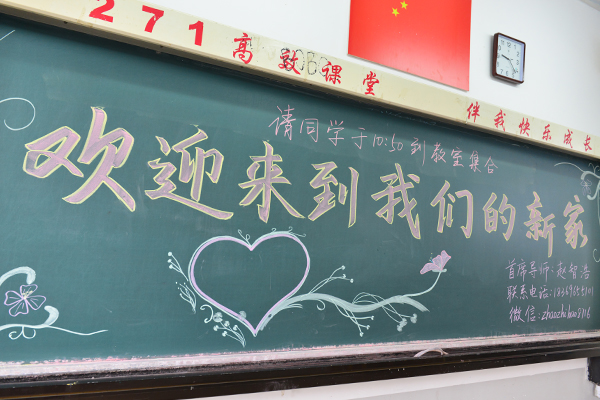 271高效课堂
伴我快乐成长
请同学于10:50到教室集合
欢迎来到我们的新家
首席导师:赵智浩
联系电话:
微信: